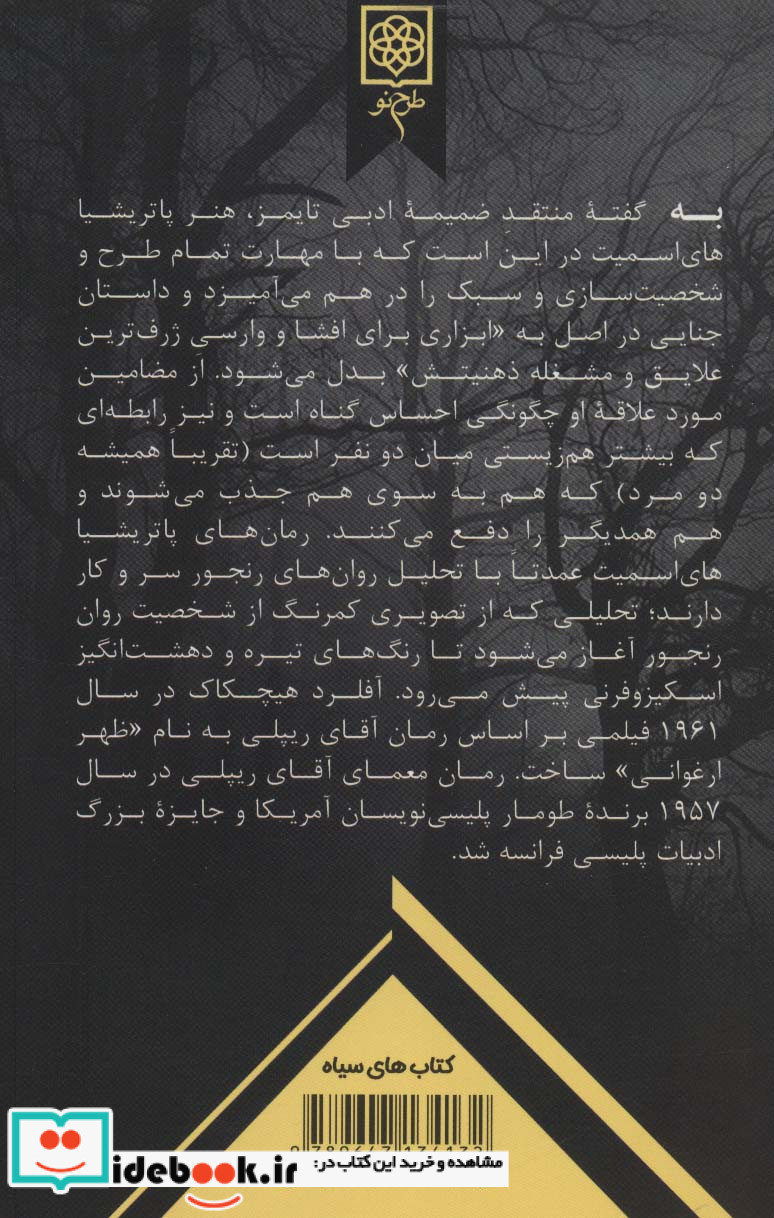 طرح نو
به گفتهٔ منتقدِ ضمیمهٔ ادبی تایمز، هنر پاتریشیا
های‌اسمیت در این است که با مهارت تمام طرح و
شخصیت‌سازی و سبک را در هم می‌آمیزد و داستان
جنایی در اصل به «ابزاری برای افشا و وارسیِ ژرف‌ترین
علایق و مشغله ذهنیتش» بدل می‌شود. از مضامین
مورد علاقهٔ او چگونگی احساس گناه است و نیز رابطه‌ای
که بیشتر هم‌زیستی میان دو نفر است (تقریباً همیشه
دو مرد) که هم به سوی هم جذب می‌شوند و
هم همدیگر را دفع می‌کنند. رمان‌های پاتریشیا
های‌اسمیت عمدتاً با تحلیل روان‌های رنجور سر و کار
دارند؛ تحلیلی که از تصویری کمرنگ از شخصیت روان
رنجور آغاز می‌شود تا رنگ‌های تیره و دهشت‌انگیز
اسکیزوفرنی پیش می‌رود. آفلرد هیچکاک در سال
۱۹۶۱ فیلمی بر اساس رمان آقای ریپلی به نام «ظهر
ارغوانی» ساخت. رمان معمای آقای ریپلی در سال
۱۹۵۷ برندهٔ طومار پلیسی‌نویسان آمریکا و جایزهٔ بزرگ
ادبیات پلیسی فرانسه شد.
کتاب های سیاه
مشاهده و خرید این کتاب در:
idebook.ir